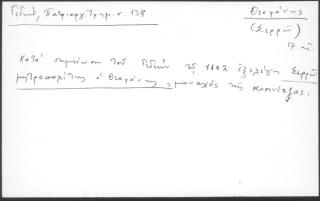 Γεδεών, Πατριαρχ. Ἐφημ. σ. 138
Θεοφάνης
(Σερρῶν)
17 αἰ.
Κατὰ σημείωσιν τοῦ Γεδεών τῷ 1602 ἐξελέγη Σερρῶν
μητροπολίτης ὁ Θεοφάνης, μοναχὸς τῆς Κοσινίτζας.